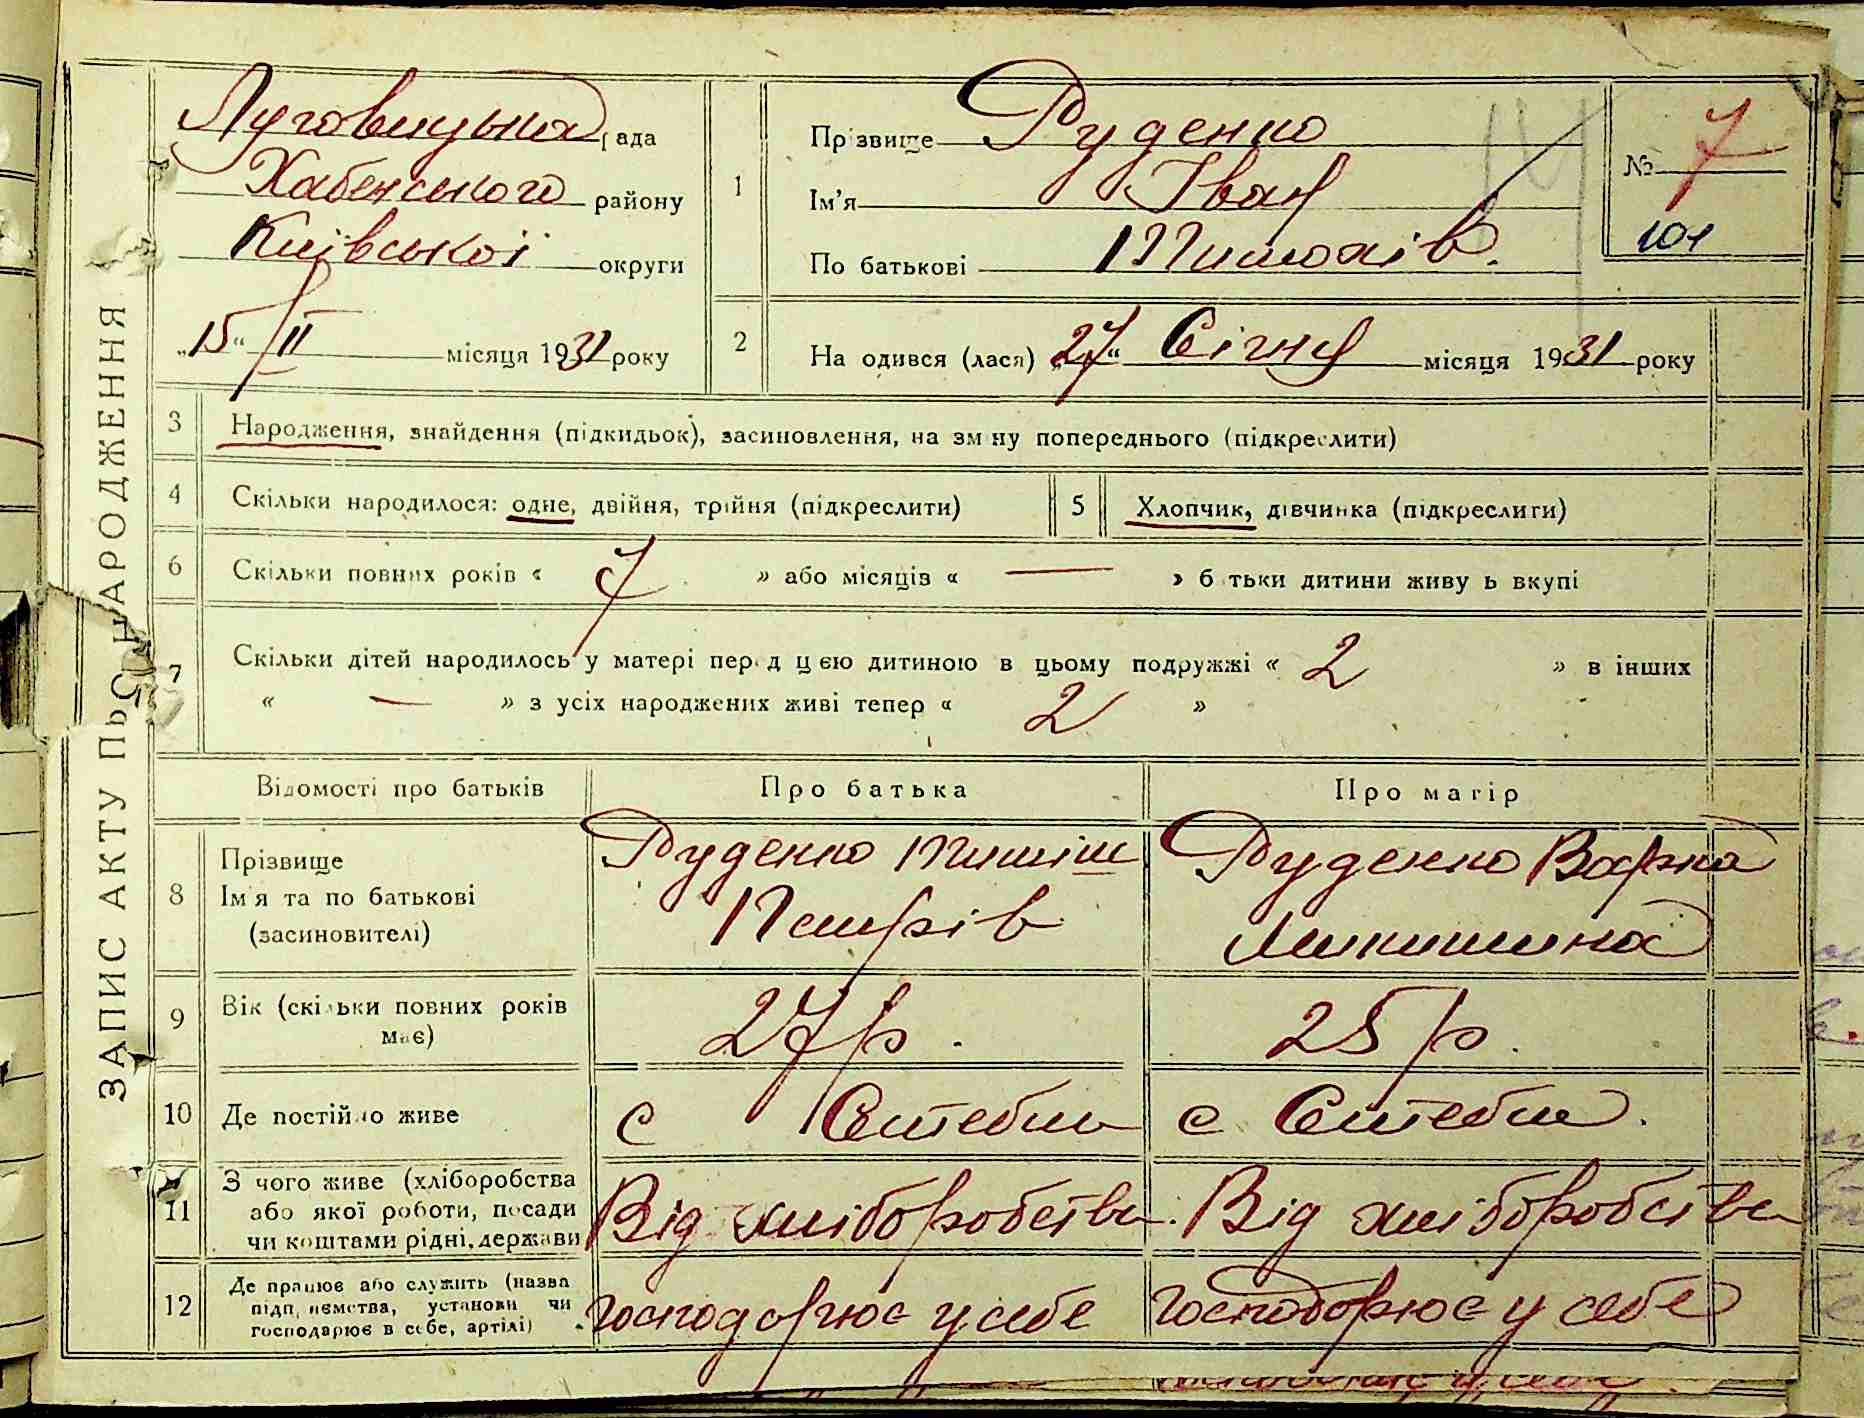 ЗАПИС АКТУ ПРО НАРОДЖЕННЯ
Луговицька рада
Хабенського району
Київської округи
„15“ II місяця 1931 року
1
Прізвище Руденко
Ім'я Іван
По батькові Тимохів.
№ 7
101
2
Народився (лася) „27“ Січня місяця 1931 року
3 Народження, знайдення (підкидьок), засиновлення, на зміну попереднього (підкреслити)
4 Скільки народилося: одне, двійня, трійня (підкреслити)
5 Хлопчик, дівчинка (підкреслити)
6 Скільки повних років « 7 » або місяців « — » батьки дитини живуть вкупі
7 Скільки дітей народилось у матері перед цією дитиною в цьому подружжі « 2 » в інших
« — » з усіх народжених живі тепер « 2 »
Відомості про батьків Про батька Про матір
8 Прізвище
Ім'я та по батькові
(засновителі)
Руденко Тиміш
Петрів
Руденко Варка
Микитина
9 Вік (скільки повних років
має)
27 р. 25 р.
10 Де постійно живе с с
11 З чого живе (хліборобства
або якої роботи, посади
чи коштами рідні, держави
Від хліборобства. Від хліборобства
12 Де працює або служить (назва
підприємства, установи чи
господарює в себе, артілі)
господорює у себе господорює у себе